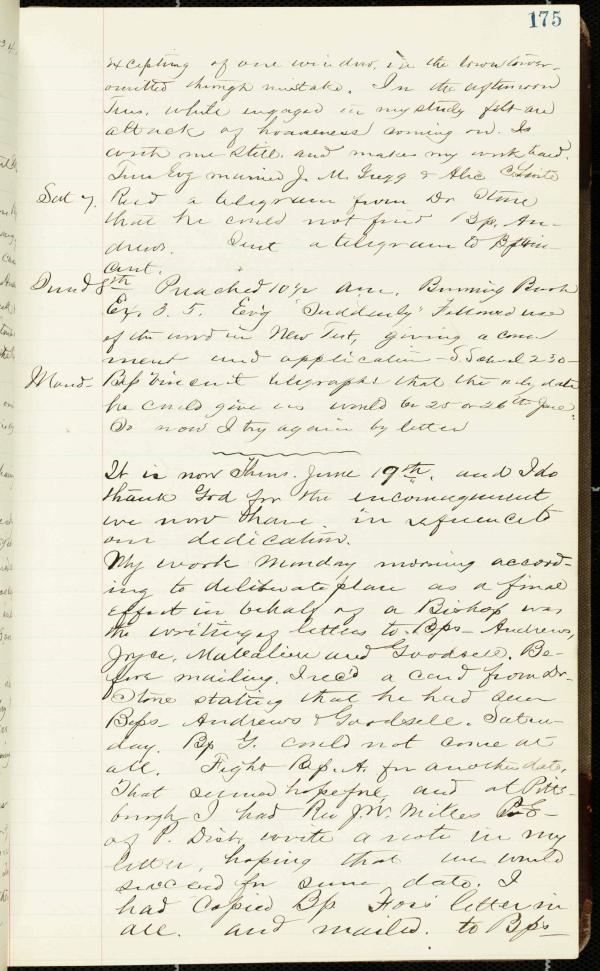 175
excepting of one window, in the town tower
omitted through mistake. In the afternoon
Tues. while engaged in my study felt an
attack of hoarseness coming on. Is
with me still, and makes my work hard.
Tues Evg married J. M. Gregg & Alic
Sat 7. Recd a telegram from Dr Stone
that he could not find Bp. An-
drews. Sent a telegram to Bp Vin-
cent.
Sund 8th Preached 10 1/2 Am. Burning Bush
Ex. 3. 5. Ev'g "Suddenly" Followed use
of the word in New Test, giving a com
ment and application - S. School 2 30 -
Mond- Bp Vincent telegraphs that the only date
he could give us would be 25 or 26th June.
So now I try again by letter
It is now Thurs. June 19th. and I do
thank God for the encouragement
we now have in reference to
our dedication.
My work Monday morning accord-
ing to deliberate plan as a final
effort in behalf of a Bishop was
the writing of letters to Bps- Andrews,
Joyce, Mallalieu and Goodsell. Be-
fore mailing, I rec'd a card from Dr-
Stone stating that he had seen
Bps- Andrews & Goodsell. Satur-
day. Bp G. could not come at
all. Fight Bp. A. for another date.
That seemed hopeful, and at Pitts-
burgh I had Rev J. W. Miles P. E-
of P. Dist, write a note in my
letter, hoping that we would
succeed for some date. I
had copied Bp Foss' letter in
all. and mailed. to Bps-